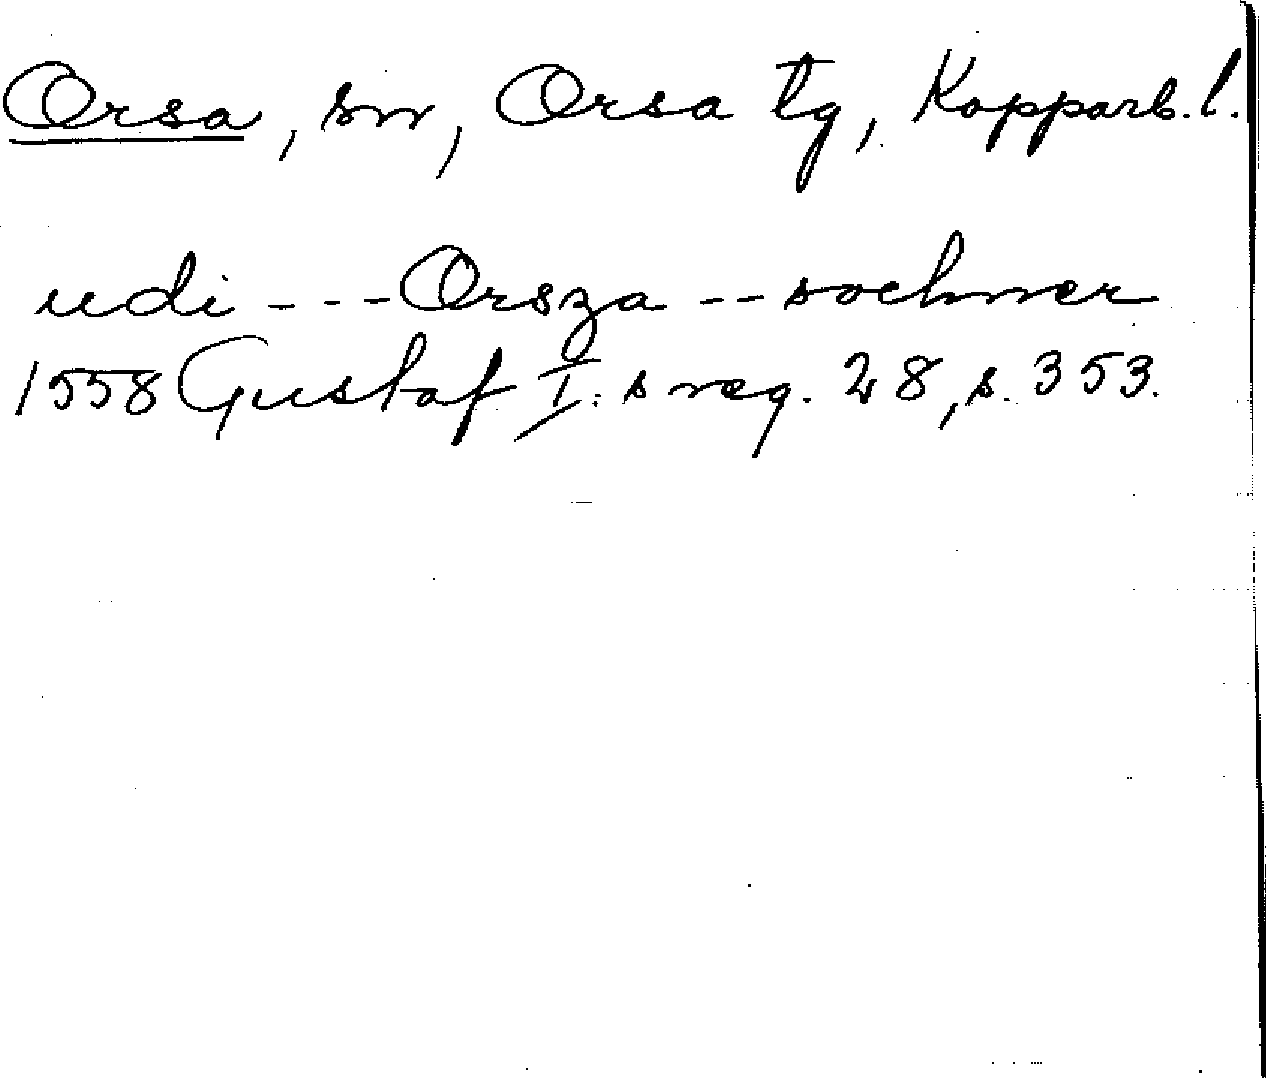 Orsa, sn, Orsa tg, Kopparb. l.
udi - - - Orsza - - sochner
1558 Gustaf I: s reg. 28, s. 353.